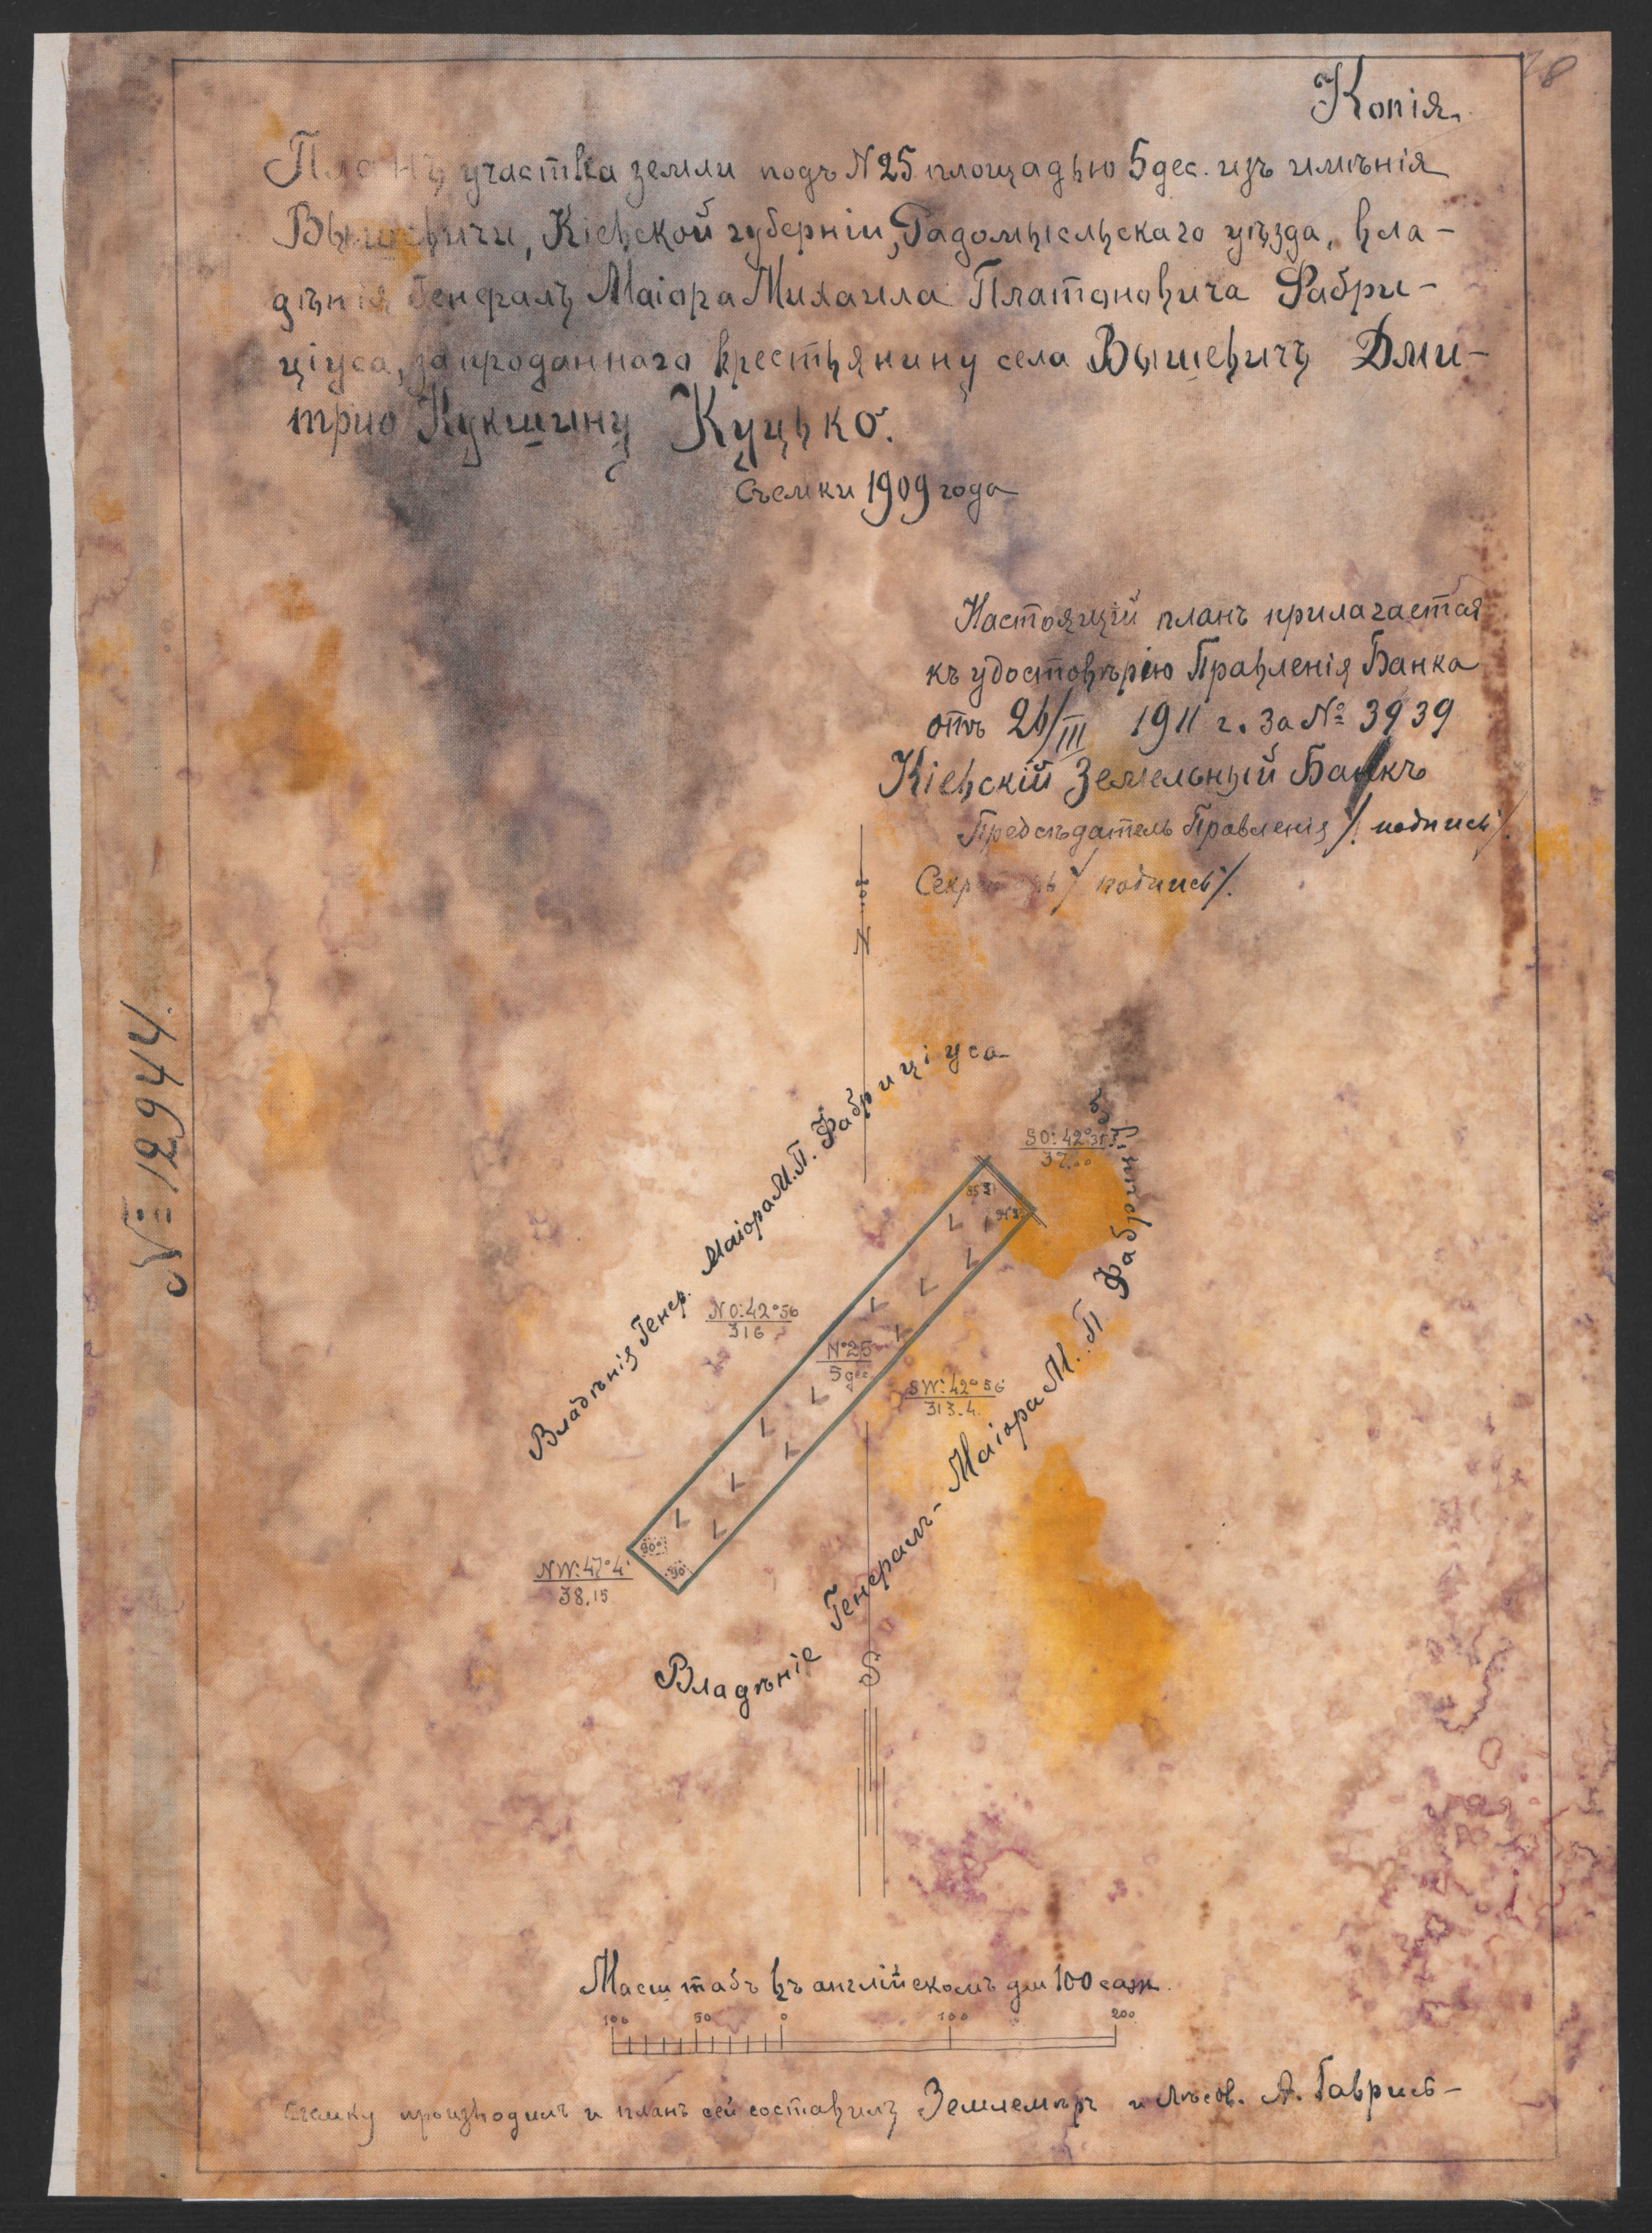 Копія.
Планъ участка земли подъ N25 площадью 5 дес. изъ имѣнія
Вышевичи, Кіевской губерніи, Радомысльскаго уѣзда, вла-
дѣнія Генералъ Маіора Михаила Платоновича Фабри-
ціуса, запроданнаго крестьянину села Вышевичъ Дми-
трію Кукшину Куцько.
Съемки 1909 года
Настоящій планъ прилагается
къ удостовѣрію Правленія Банка
отъ 26/III 1911 г. за № 3939
Кіевскій Земельный Банкъ
Предсѣдатель Правленія /. подпись /.
Секретарь / подпись /.
№ 12944.
N
Владѣнія Генер. Маіора М.П. Фабриціуса
SO: 42°
37.00
NO: 42°56
316
N°25
5 дес.
SW: 42°56'
313.4.
NW: 47°4'
38.15
90°
90
Владѣніе Генералъ-Маіора М. П. Фабриціуса
S
Масштабъ въ англійскомъ дм 100 саж.
100 50 0 100 200
Съемку производилъ и планъ сей составилъ Землемѣръ и Лѣсов. А. Гаврись-